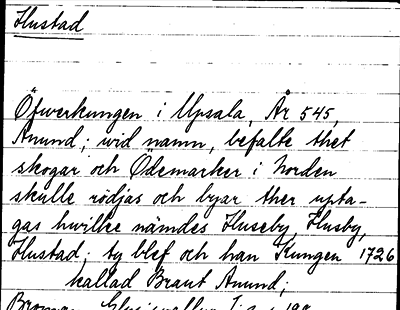 Hustad
Öfwerkungen i Upsala, År 545,
Anund; wid namn, befalte thet
skogar och Ödemarker i Norden
skulle rödjas och byar ther upta-
gas hwilke nämdes Huseby, Husby,
Hustad; ty blef och han Kungen 1726
kallad Braut Anund;